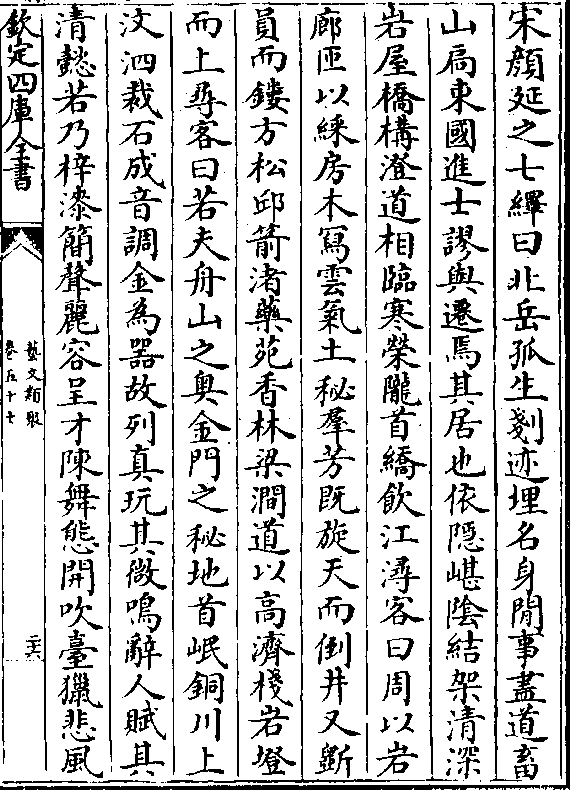 宋顔延之七繹曰北岳孤生剗迹埋名身閒事盡道畜
山扃東國進士謬與遷焉其居也依隠嵁隂結架清深
岩屋橋構澄道相臨寒榮隴首繑飲江潯客曰周以岩
廊匝以綵房木冩雲氣土秘羣芳既旋天而倒井又斵
員而鏤方松邱箭渚藥苑香林梁澗道以高濟棧岩墱
而上尋客曰若夫舟山之奥金門之秘地首岷銅川上
汶泗裁石成音調金為器故列真玩其微鳴辭人賦其
清懿若乃梓漆簡聲麗容呈才陳舞態開吹臺獵悲風
欽定四庫全書
藝文類聚
卷五十七
二六